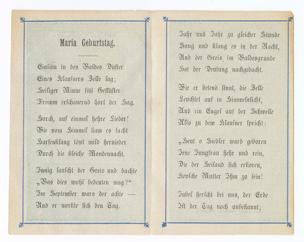 Maria Geburtstag.
Einsam in des Waldes Düster
Eines Klausners Zelle lag;
Heiliger Minne süß Geflüster
Fromm erschauernd hört der Hag.
Horch, auf einmal hehre Lieder!
Wie vom Himmel sien es sacht
Harfenklang tönt mild hernieder
Durch die bleiche Mondennacht.
Innig lauscht der Greis und dachte
„Was dies wohl bedeuten mag?"
Im September war der achte —
Und er merkte sich den Tag.
Jahr und Jahr zu gleicher Stunde
Sang und klang es in der Nacht,
Und der Greis im Waldesgrunde
Hat der Deutung nachgedacht.
Wie er betend sinnt, die Zelle
Leuchtet auf in Himmelslicht,
Und ein Engel auf der Schwelle
Also zu dem Klausner spricht:
„Heut' o Siedler ward geboren
Jene Jungfrau hehr und rein,
Die der Heiland sich erkoren,
Keusche Mutter Ihm zu sein!
Jubel herrscht bei uns, der Erde
Ist der Tag noch unbekannt;